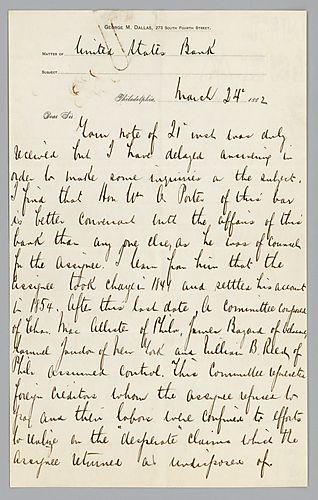 GEORGE M. DALLAS, 273 SOUTH FOURTH STREET,
MATTER OF United States Bank
SUBJECT
Philadelphia, March 24th 1882
Dear Sir
Your note of 21st inst was duly
received but I have delayed answering in
order to make some inquiries on the subject.
I find that Hon Wm A Porter of this bar
is better conversant with the affairs of this
bank than any one else, as he was of Counsel
for the Assignee. I learn from him that the
Assignee took charge in 1841 and settled his account
in 1854. After this last date, A Committee composed
of Chas. Mac Allister of Phila, James
Samuel Jaudon of New York and William B. Reed, of
Phila assumed control. This Committee represented
foreign Creditors whom the assignee refused to
pay and their labors were confined to efforts
to realize on the "desperate" claims which the
Assignee returned as undisposed of